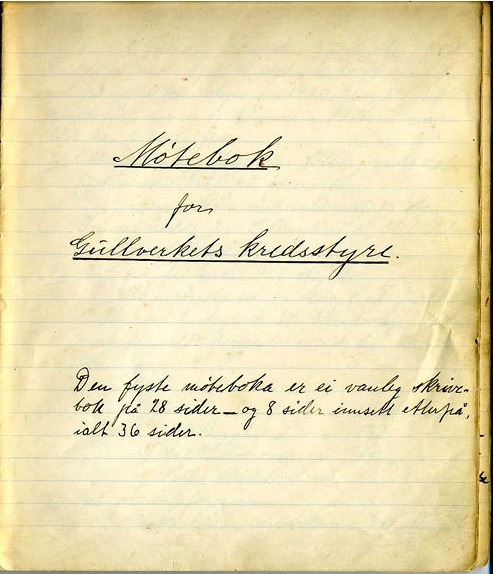 Møtebok
for
Gullverkets kredsstyre.
Den fyste møteboka er ei vanleg skrive-
bok på 28 sider – og 8 sider innsett etterpå,
ialt 36 sider.